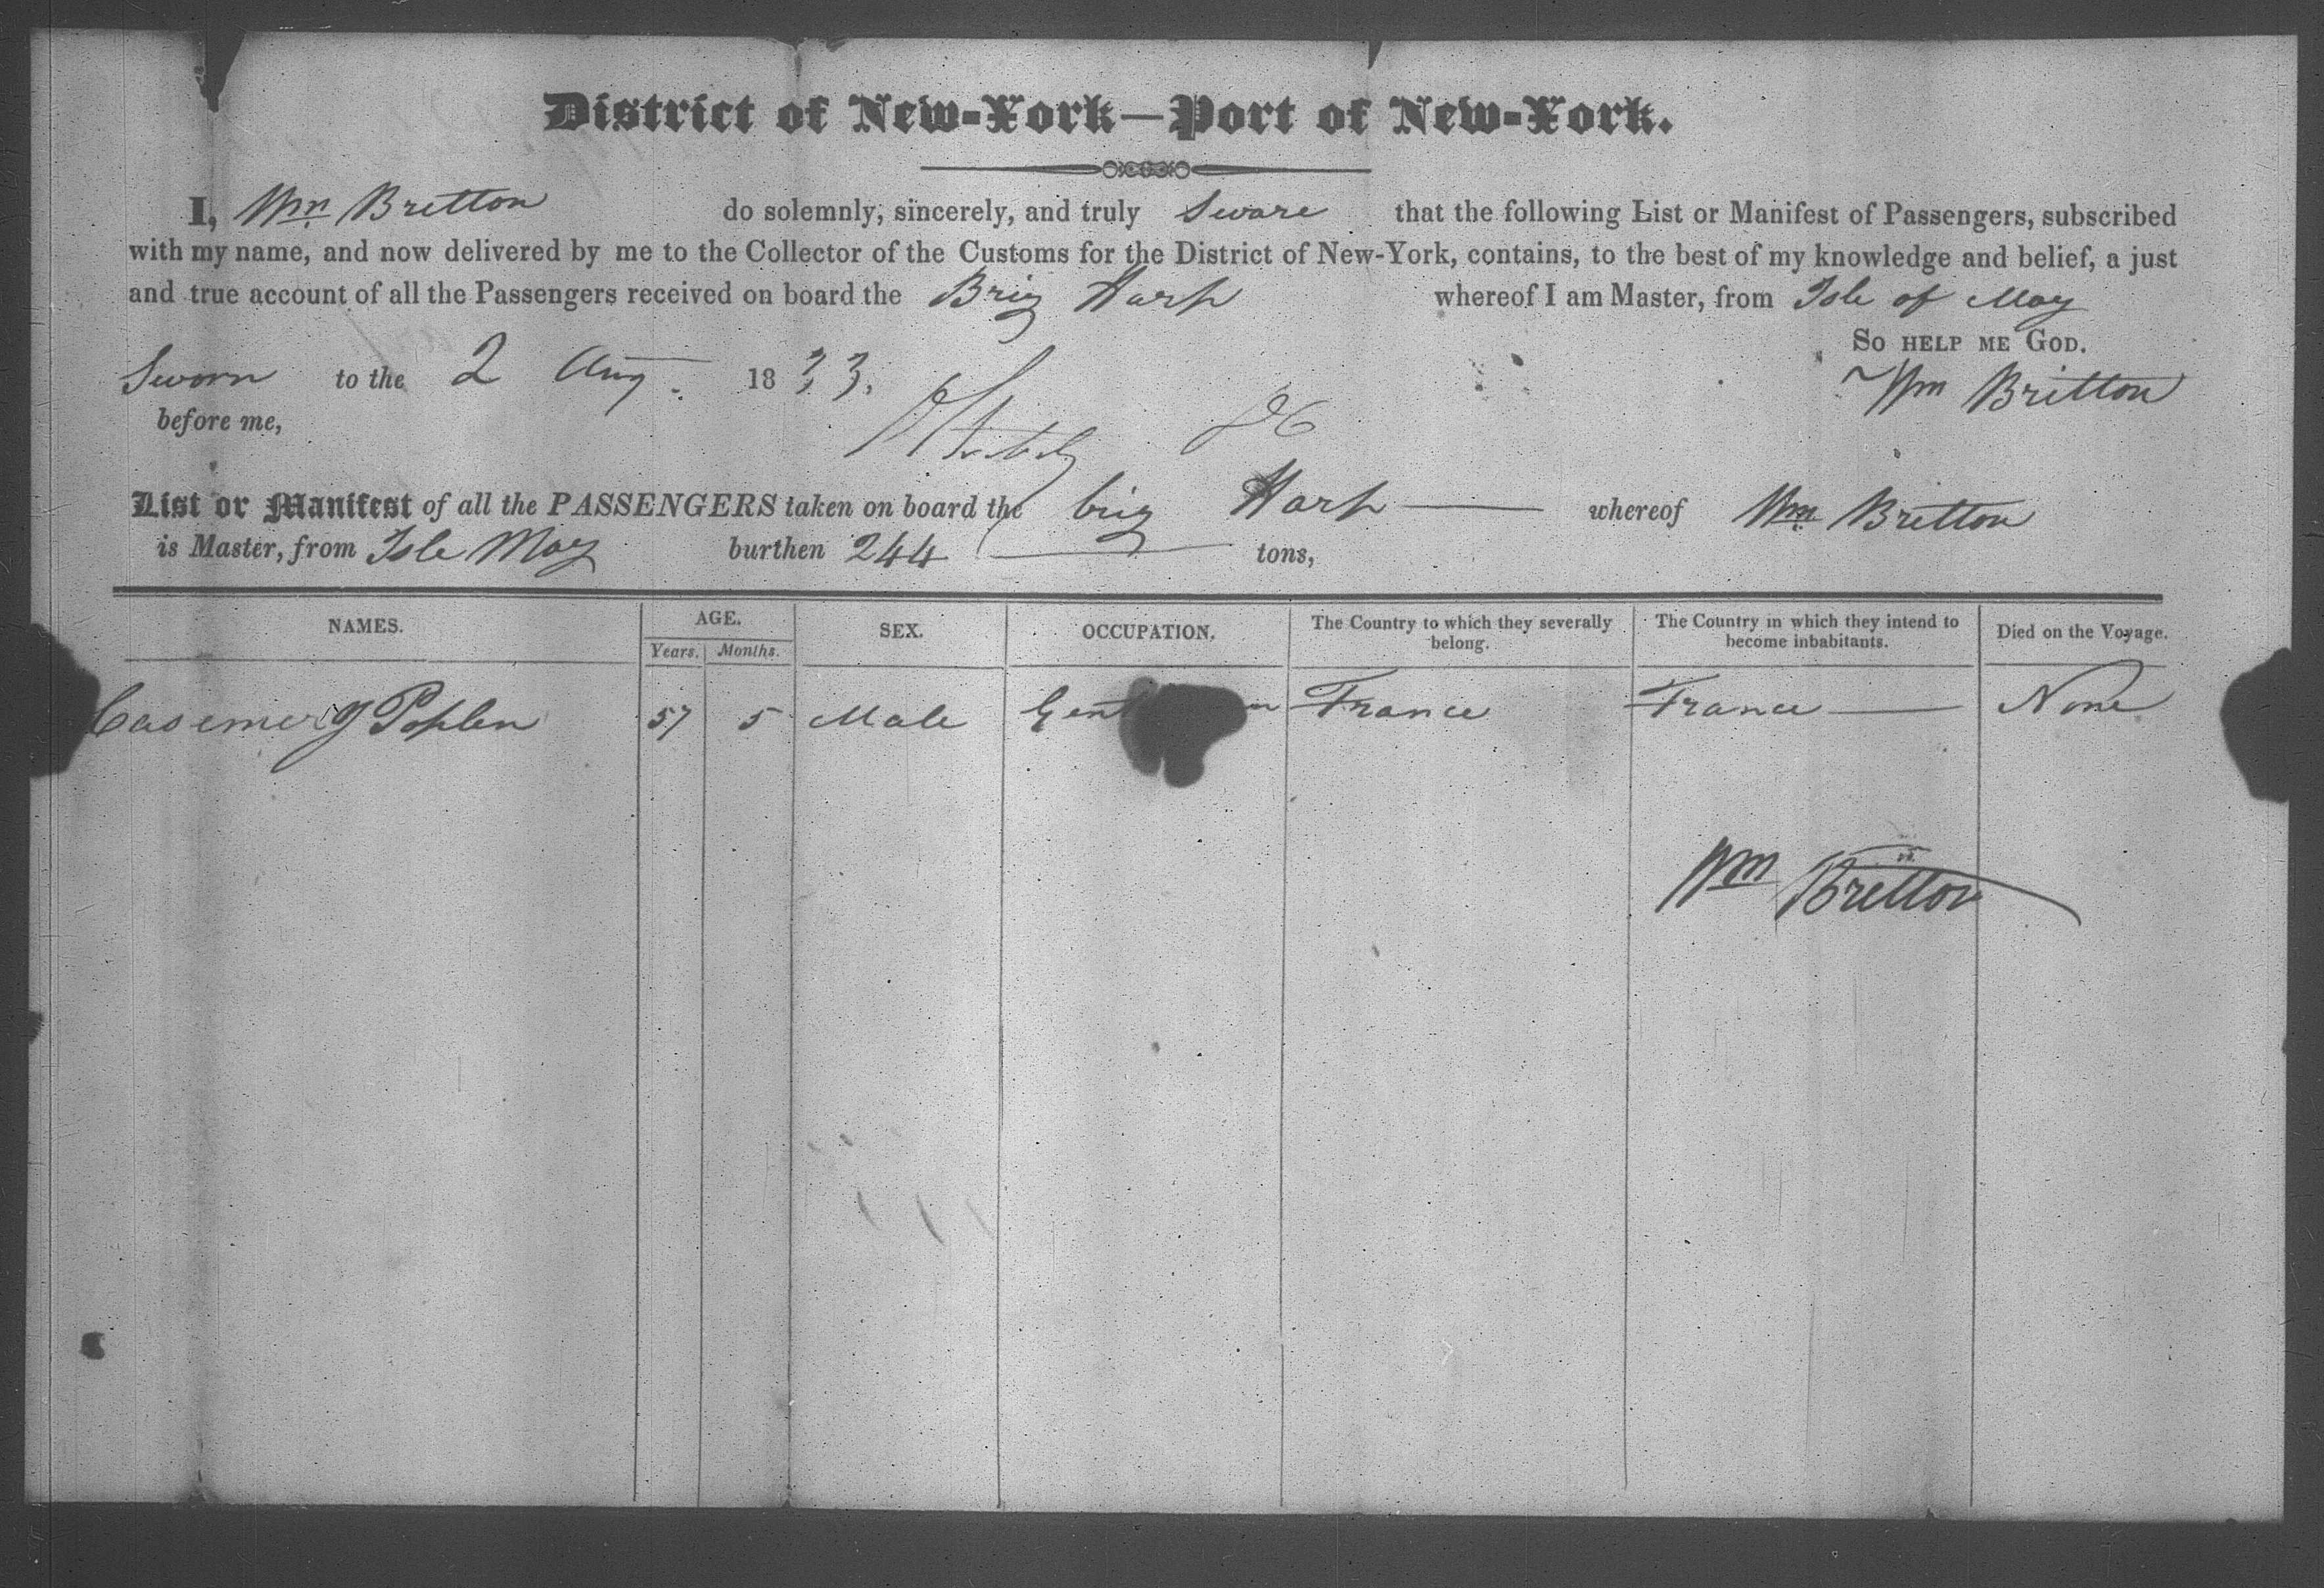 District of New-York—Port of New-York.
I, Wm Bretton do solemnly, sincerely, and truly Sware that the following List or Manifest of Passengers, subscribed
with my name, and now delivered by me to the Collector of the Customs for the District of New-York, contains, to the best of my knowledge and belief, a just
and true account of all the Passengers received on board the Brig Harp whereof I am Master, from Isle of May
So help me God.
Sworn to the 2 Aug. 1833. Wm Britton
before me,
List or Manifest of all the PASSENGERS taken on board the brig Harp — whereof Wm Bretton
is Master, from Isle May burthen 244 — tons,
NAMES. AGE. SEX. OCCUPATION. The Country to which they severally belong. The Country in which they intend to become inhabitants. Died on the Voyage.
Years. Months.
57 5 Male France France — None
Wm Bretton